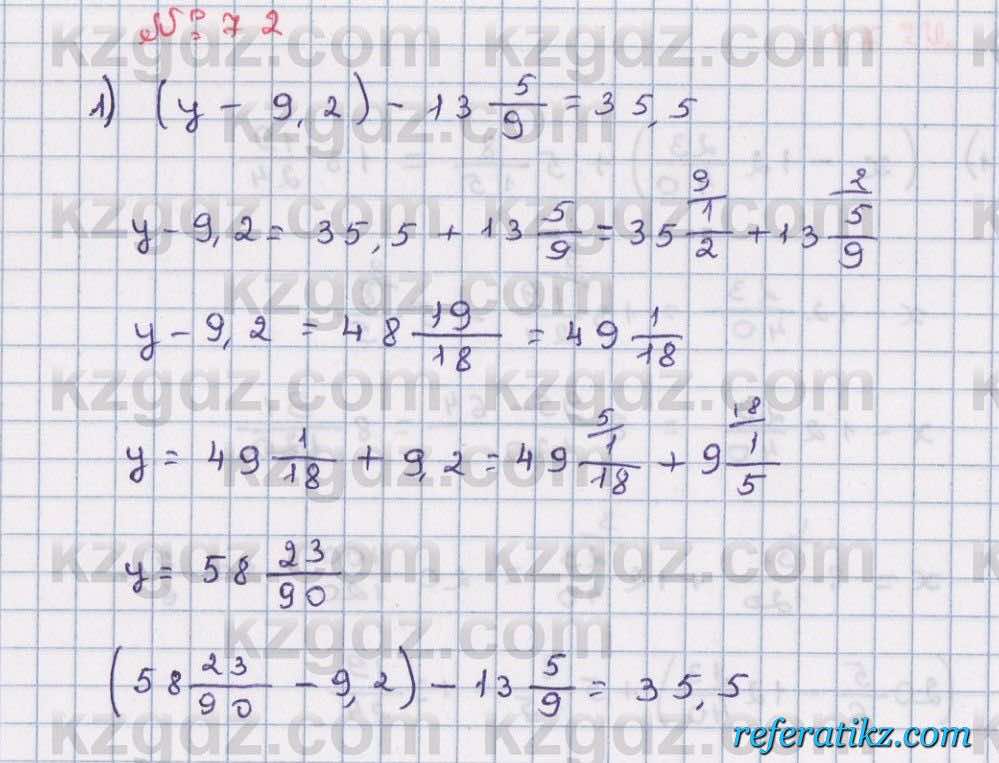 № 72
1) (y - 9,2) - 13 5/9 = 35,5
y - 9,2 = 35,5 + 13 5/9 = 35 1/2 (9) + 13 5/9 (2)
y - 9,2 = 48 19/18 = 49 1/18
y = 49 1/18 + 9,2 = 49 1/18 (5) + 9 1/5 (18)
y = 58 23/90
(58 23/90 - 9,2) - 13 5/9 = 35,5
kzgdz.com
referatikz.com